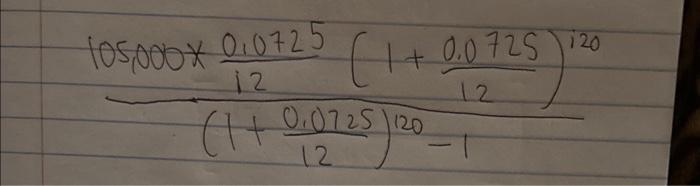 105,000 × 0.0725/12 (1 + 0.0725/12)^120
(1 + 0.0725/12)^120 - 1